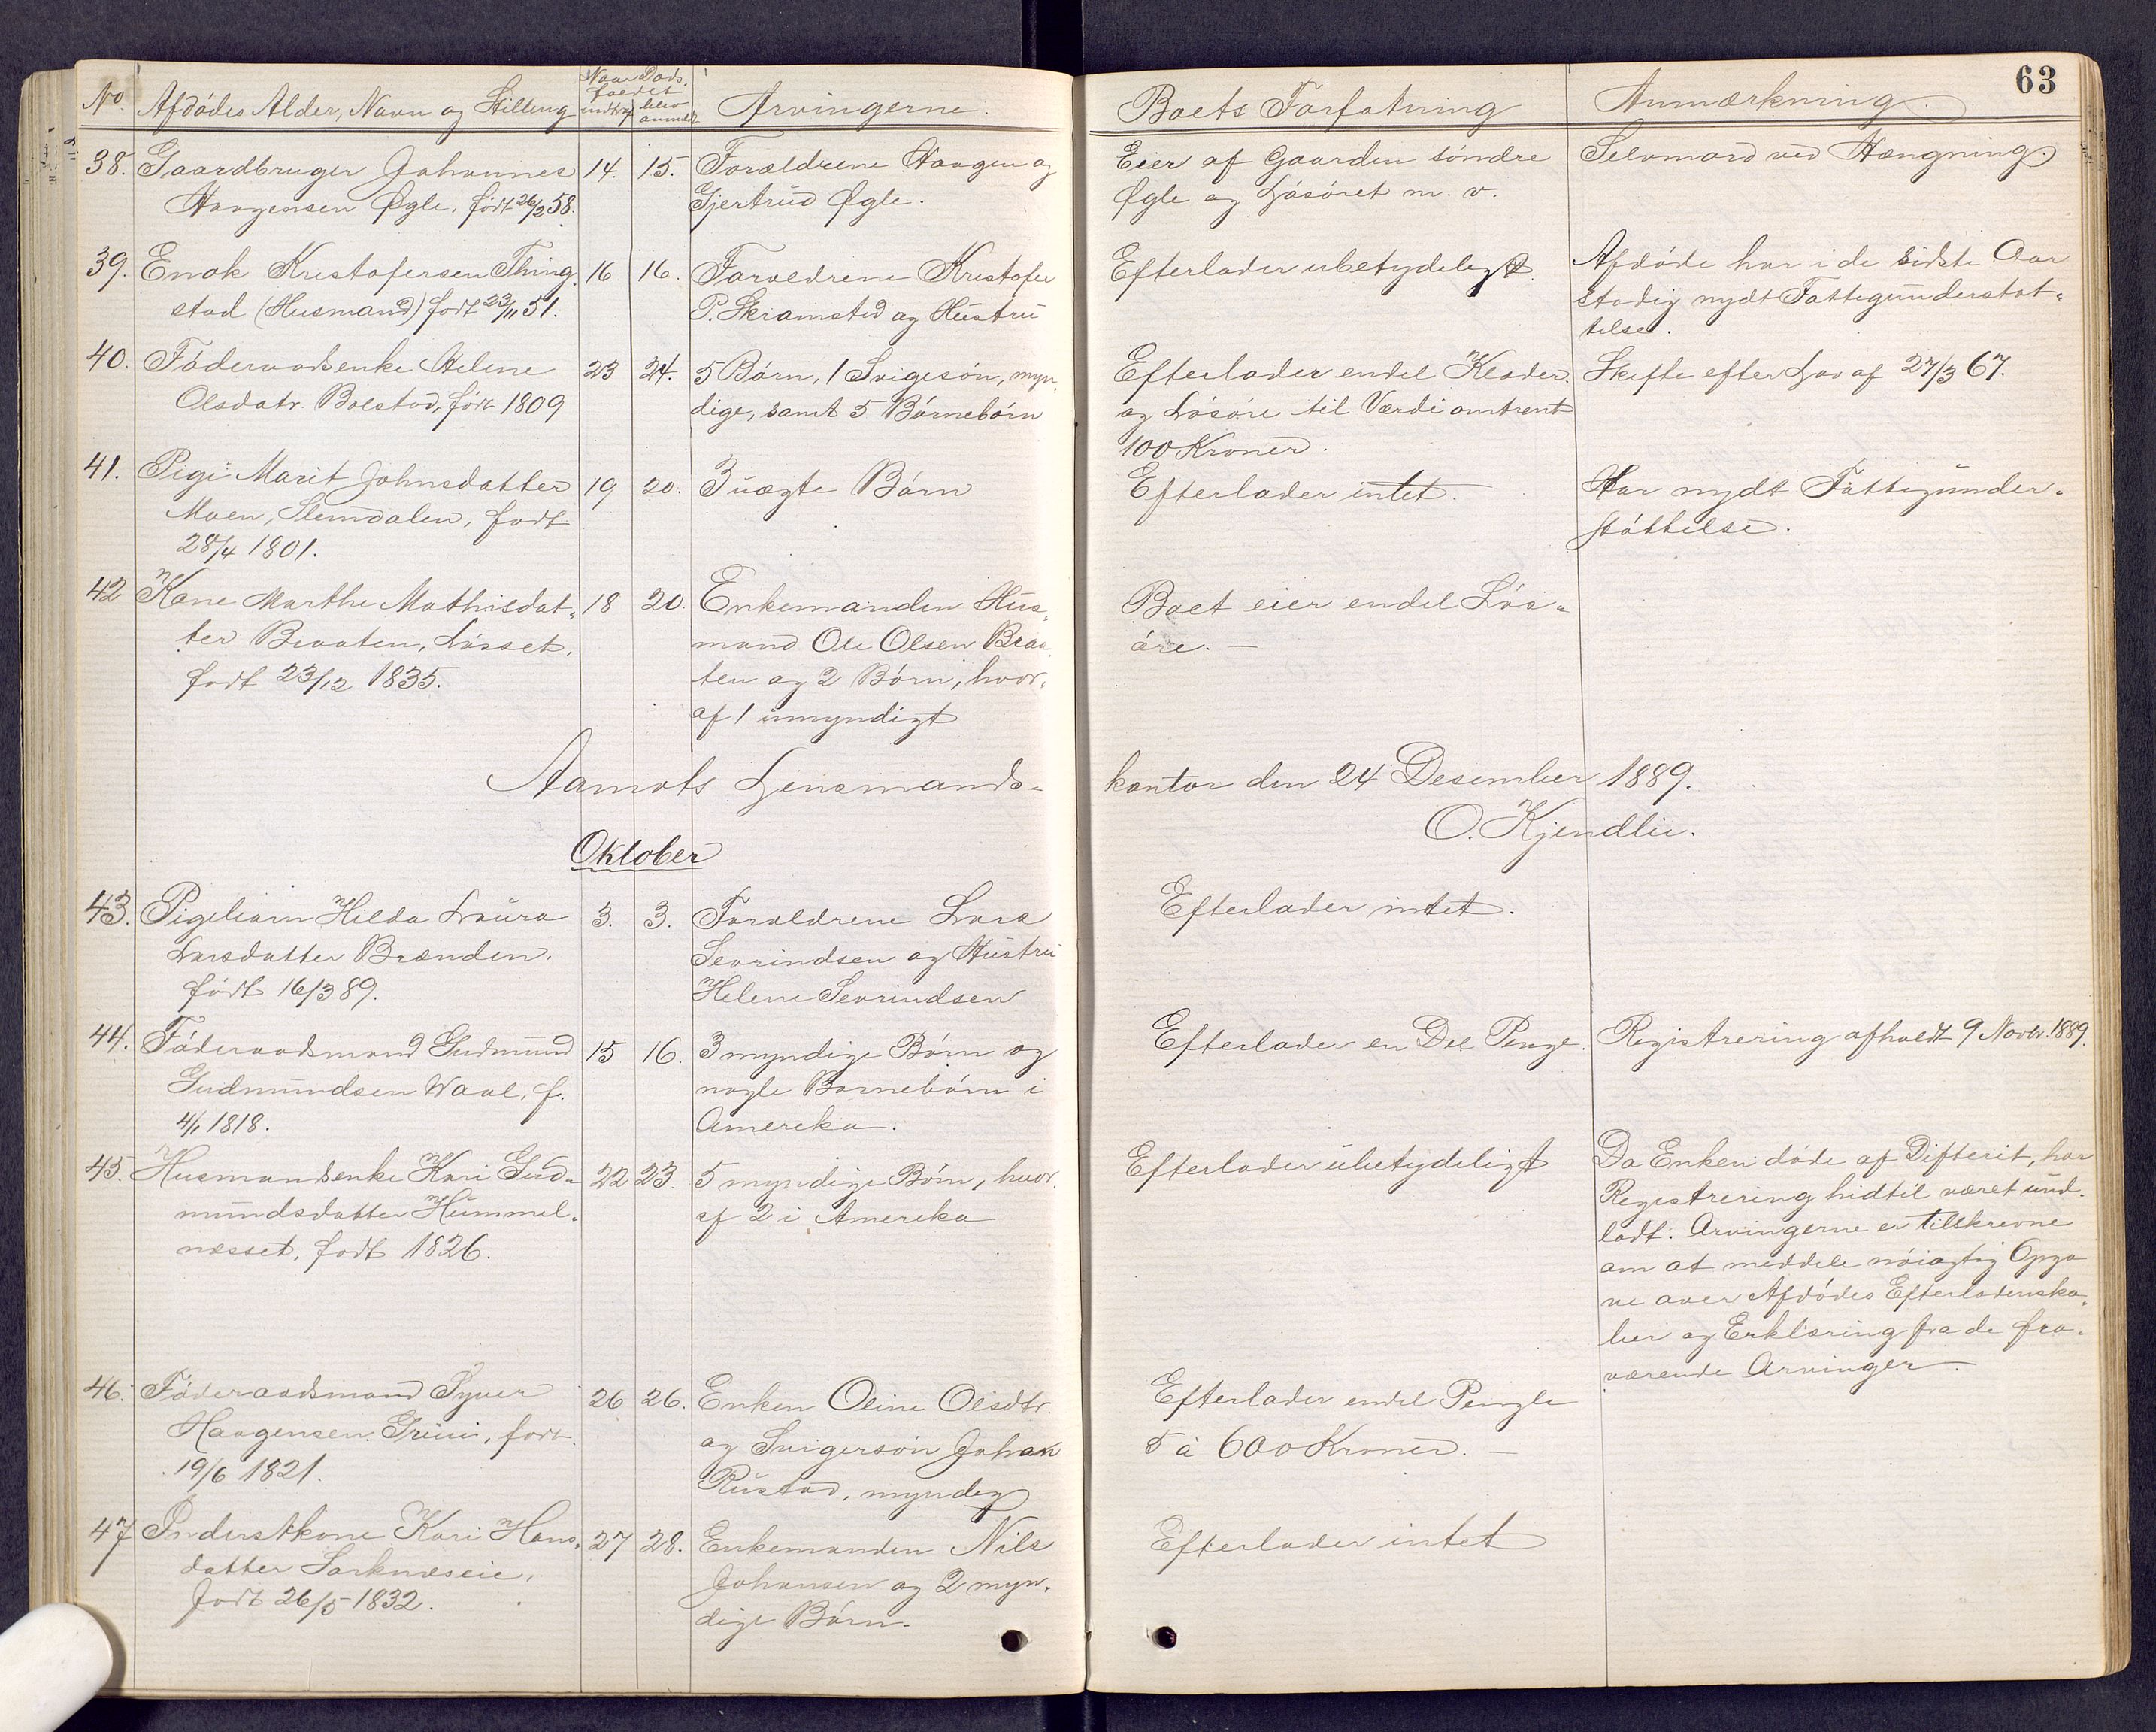 63
No. Afdödes Alder, Navn og Stilling Naar Döds- Arvingerne. Boets Forfatning Anmærkning.
faldet
indtraf blev
anmeldt
38. Gaardbruger Johannes 14. 15. Forældrene Haagen og Eier af Gaarden söndre Selvmord ved Hængning.
Haagensen Øgle, født 26/2 58. Gjertrud Øgle. Øgle og Lösöret m. v.
39. Enok Kristofersen Thing- 16 16. Forældrene Kristofer Efterlader ubetydeligt. Afdöde har i de sidste Aar
stad (Husmand) født 23/11 51. P. Skramsted og Hustru stadig nydt Fattigunderstöt-
telse.
40. Föderaadsenke Helene 23 24. 5 Börn, 1 Svigesön, myn- Efterlader endel Klæder Skifte efter Lov af 27/3 67.
Olsdatr. Bolstad, født 1809 dige, samt 5 Börnebörn og Lösöre til Værdi omtrent
100 Kroner.
41. Pige Marit Johnsdatter 19 20. 3 uægte Börn Efterlader intet. Har nydt Fattigunder-
Moen, Slemdalen, født stöttelse.
28/4 1801.
42 Kone Marthe Mathisdat- 18 20. Enkemanden Hus- Boet eier endel Lös-
ter Braaten, Lösset, mand Ole Olsen Braa- öre. —
født 23/12 1835. ten og 2 Börn, hvor-
af 1 umyndigt
Aamots Lensmands- kontor den 24 Desember 1889.
O. Kjendlie.
Oktober
43. Pigebarn Hilda Laura 3. 3. Forældrene Lars Efterlader intet.
Larsdatter Brænden. Sevrindsen og Hustru
født 16/3 89. Helene Sevrindsen
44. Föderaadsmand Gudmund 15 16. 3 myndige Börn og Efterlader en Del Penge. Registrering afholdt 9 Novbr. 1889.
Gudmundsen Waal, f. nogle Börnebörn i
4/1 1818. Amerika.
45. Husmandsenke Kari Gud- 22 23. 5 myndige Börn, hvor- Efterlader ubetydeligt Da Enken döde af Difterit, har
mundsdatter Hummel- af 2 i Amerika Registrering hidtil været und-
næsset, født 1826. ladt. Arvingerne er tilskrevne
om at meddele nöiagtig Opga-
ve over Afdödes Efterladenska-
ber og Erklæring fra de fra-
værende Arvinger.
46. Föderaadsmand Syver 26 26. Enken Oline Olsdtr. Efterlader endel Penge
Haagensen Grini, født og Svigersön Johan 5 à 600 Kroner. —
19/6 1821. Rustad, myndig
47 Inderstkone Kari Hans- 27 28. Enkemanden Nils Efterlader intet
datter Sorknæseie, Johansen og 2 myn-
født 26/5 1832. dige Börn.